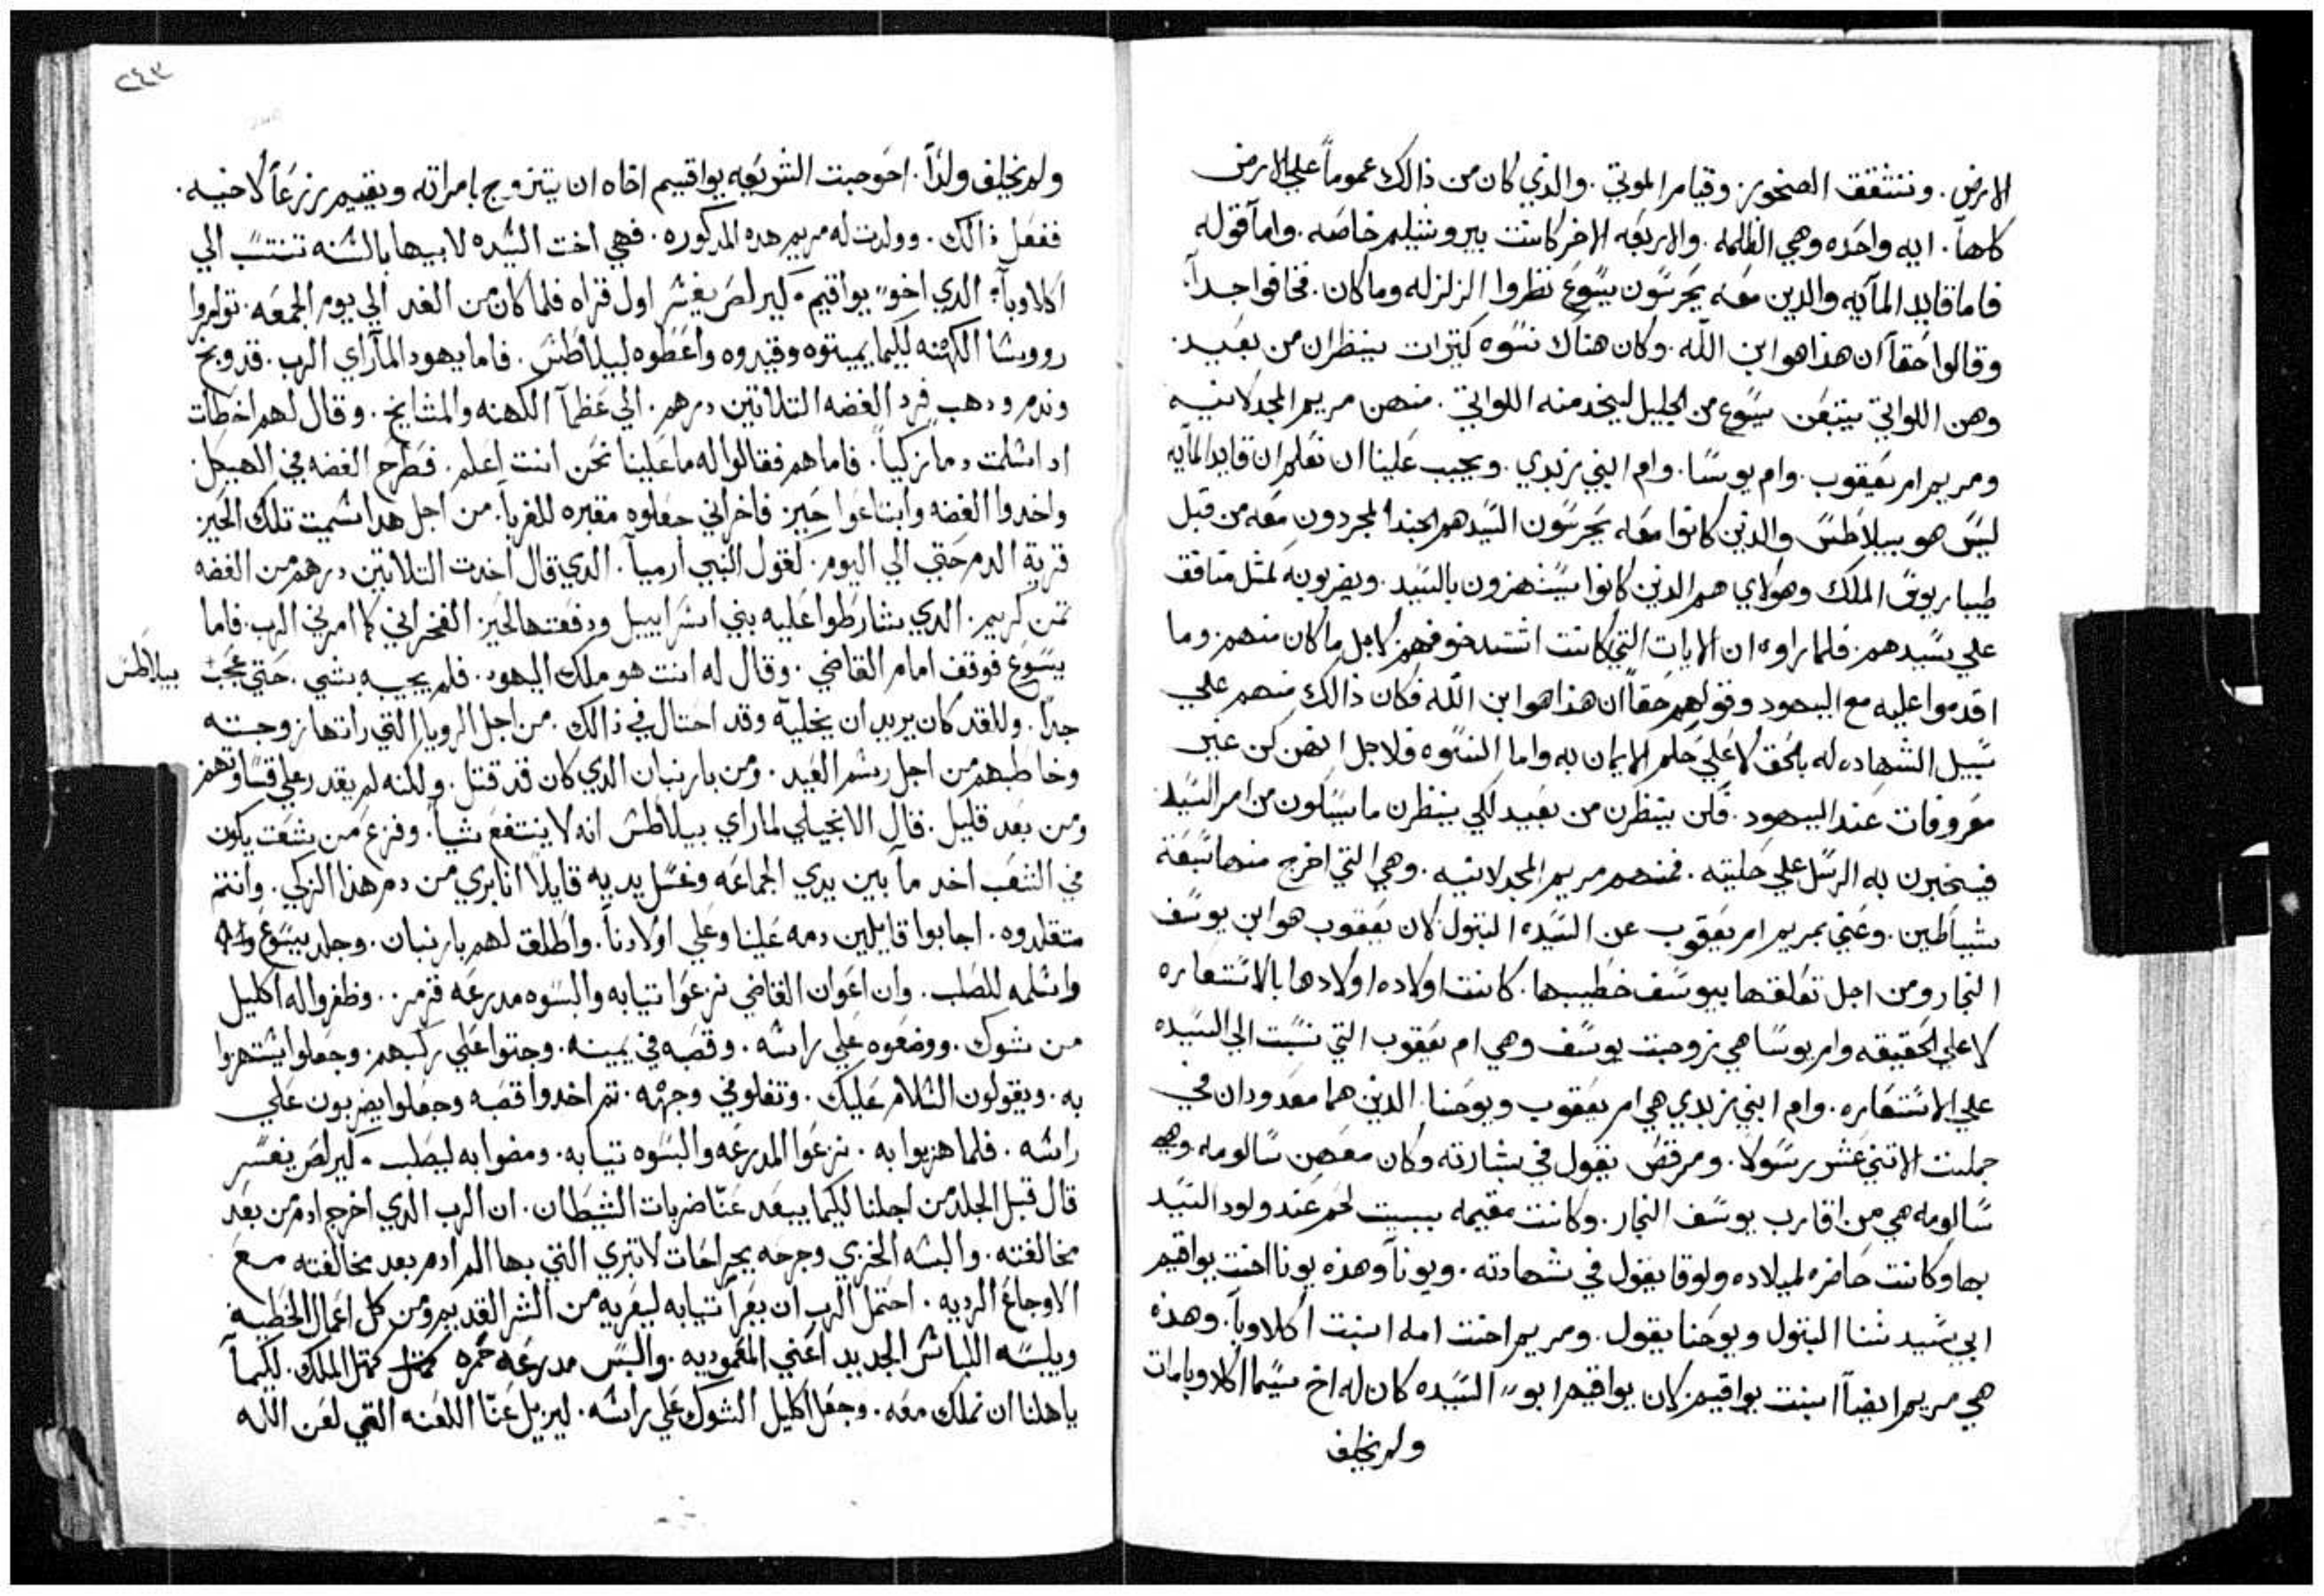 الارض. وتتشقق الصخور. وقيام الموتي. والذي كان من ذالك عموماً علي الارض
كلها. ايه واحده وهي الظلمه. والاربعه الاخر كانت بيروشليم خاصه. واما قوله
فاما قايد المآيه والدين معه يحرسون يسوع نظروا الزلزله وما كان. فخافوا جداً.
وقالوا حقاً ان هذا هو ابن الله. وكان هناك نسوه كتيرات ينظران من بعيد.
وهن اللواتي يتبعن يسوع من الجليل ليخدمنه اللواتي. منهن مريم المجدلانيه
ومريم ام يعقوب. وام يوسا. وام ابني زبدي. ويجب علينا ان نعلم ان قايد المآيه
ليس هو بيلاطس والذين كانوا معه يحرسون السيد هم الجند المجردون معه من قبل
طيباريوس الملك وهولاي هم الذين كانوا يستهزون بالسيد. ويضربونه لمثل منافق
علي سيدهم. فلما راوه ان الايات التي كانت اشتد خوفهم لاجل ما كان منهم. وما
اقدموا عليه مع اليهود وقولهم حقاً ان هذا هو ابن الله فكان ذالك منهم علي
سبيل الشهاده له بالحق لا علي حلم الايمان به واما النسوه فلاجل انهن كن غير
معروفات عند اليهود. فكن ينظرن من بعيد لكي ينظرن ما يكون من امر السيد
فيخبرن به الرسل علي حليته. فمنهم مريم المجدلانيه. وهي التي اخرج منها سبعة
شياطين. وعني بمريم ام يعقوب عن السيده البتول لان يعقوب هو ابن يوسف
النجار ومن اجل تعلقها بيوسف خطيبها. كانت اولاده اولادها بالاستعاره
لا علي الحقيقه وام يوسا هي زوجت يوسف وهي ام يعقوب التي نسبت الي السيده
علي الاستعاره. وام ابني زبدي هي ام يعقوب ويوحنا. الدين هما معدودان في
جملت الاتني عشر رسولاً. ومرقص يقول في بشارته وكان معهن سالومه وهي
سالومه هي من اقارب يوسف النجار. وكانت مقيمه ببيت لحم عند ولود السيد
بها وكانت حاضره لميلاده ولوقا يقول في شهادته. ويونا وهذه يونا اخت يواقيم
ابي سيدتنا البتول ويوحنا يقول. ومريم اخت امه ابنت اكلاوبا. وهذه
هي مريم ايضاً ابنت يواقيم لان يواقيم ابو السيده كان له اخ يسما اكلاوبا مات
ولم يخلف
٢٤٣
ولم يخلف ولداً. احوجت الشريعه يواقيم اخاه ان يتزوج بامراته ويقيم زرعاً لاخيه.
ففعل ذالك. وولدت له مريم هده المدكوره. فهي اخت السيده لابيها بالسنه تنتسب الي
اكلاوبا. الدي اخو يواقيم. كيرلص يفسر اول قراه فلما كان من الغد الي يوم الجمعه. توامروا
رووسا الكهنه لكيما يميتوه وقيدوه واعطوه لبيلاطس. فاما يهود لما راي الرب. قد وبخ
وندم ودهب فرد الفضه التلاتين درهم. الي عظما الكهنه والمشايخ. وقال لهم اخطات
اد اسلمت دما زكياً. فاما هم فقالوا له ما علينا نحن انت اعلم. فطرح الفضه في الهيكل.
واخدوا الفضه وابتاعوا حيز فاخراني جعلوه مقبره للغربا. من اجل هدا سميت تلك الحيز
قرية الدم حتي الي اليوم. لقول النبي ارميا. الدي قال اخدت التلاتين درهم من الفضه
تمن كريم. الدي شارطوا عليه بني اسراييل ودفعتها لحيز الفخراني كما امرني الرب. فاما
يسوع فوقف امام القاضي. وقال له انت هو ملك اليهود. فلم يجيبه بشي. حتي عجب
بيلاطس
جداً. وللقد كان يريد ان يخليه وقد احتال في ذالك. من اجل الرويا التي راتها زوجته
وخاطبهم من اجل رسم العيد. ومن بارنبان الدي كان قد قتل. ولكنه لم يقدر علي قساوتهم
ومن بعد قليل. قال الانجيلي لما راي بيلاطس انه لا ينتفع شياً. وفزع من شغت يكون
في الشعب اخد ما بين يدي الجماعه وغسل يديه قايلاً انا بري من دم هذا الزكي. وانتم
متقلدوه. اجابوا قايلين دمه علينا وعلي اولادنا. واطلق لهم بارنبان. وجلد يسوع
واسلمه للصلب. وان اعوان القاضي نزعوا تيابه والبسوه مدرعه قرمز. وظفروا له اكليل
من شوك. ووضعوه علي راسه. وقصبه في يمينه. وجتوا علي ركبهم. وجعلوا يستهزوا
به. ويقولون السلام عليك. وتفلوا في وجهه. تم اخدوا قصبه وجعلوا يضربون علي
راسه. فلما هزبوا به. نزعوا المدرعه والبسوه تيابه. ومضوا به ليصلب. كيرلص يفسر
قال قبل الجلد من اجلنا لكيما يبعد عنا ضربات الشيطان. ان الرب الدي اخرج ادم من بعد
مخالفته. والبسه الخزي وجرحه بجراحات لاتبري التي بها الم ادم بعد مخالفته مع
الاوجاع الرديه. احتمل الرب ان يعرا تيابه ليعريه من الشر القديم ومن كل اعمال الخطيه
ويلبسه اللباس الجديد اعني المعموديه. والبس مدرعه حمره كمتل الملك. لكيما
ياهلنا ان نملك معه. وجعل اكليل الشوك علي راسه. ليزيل عنا اللعنه التي لعن الله